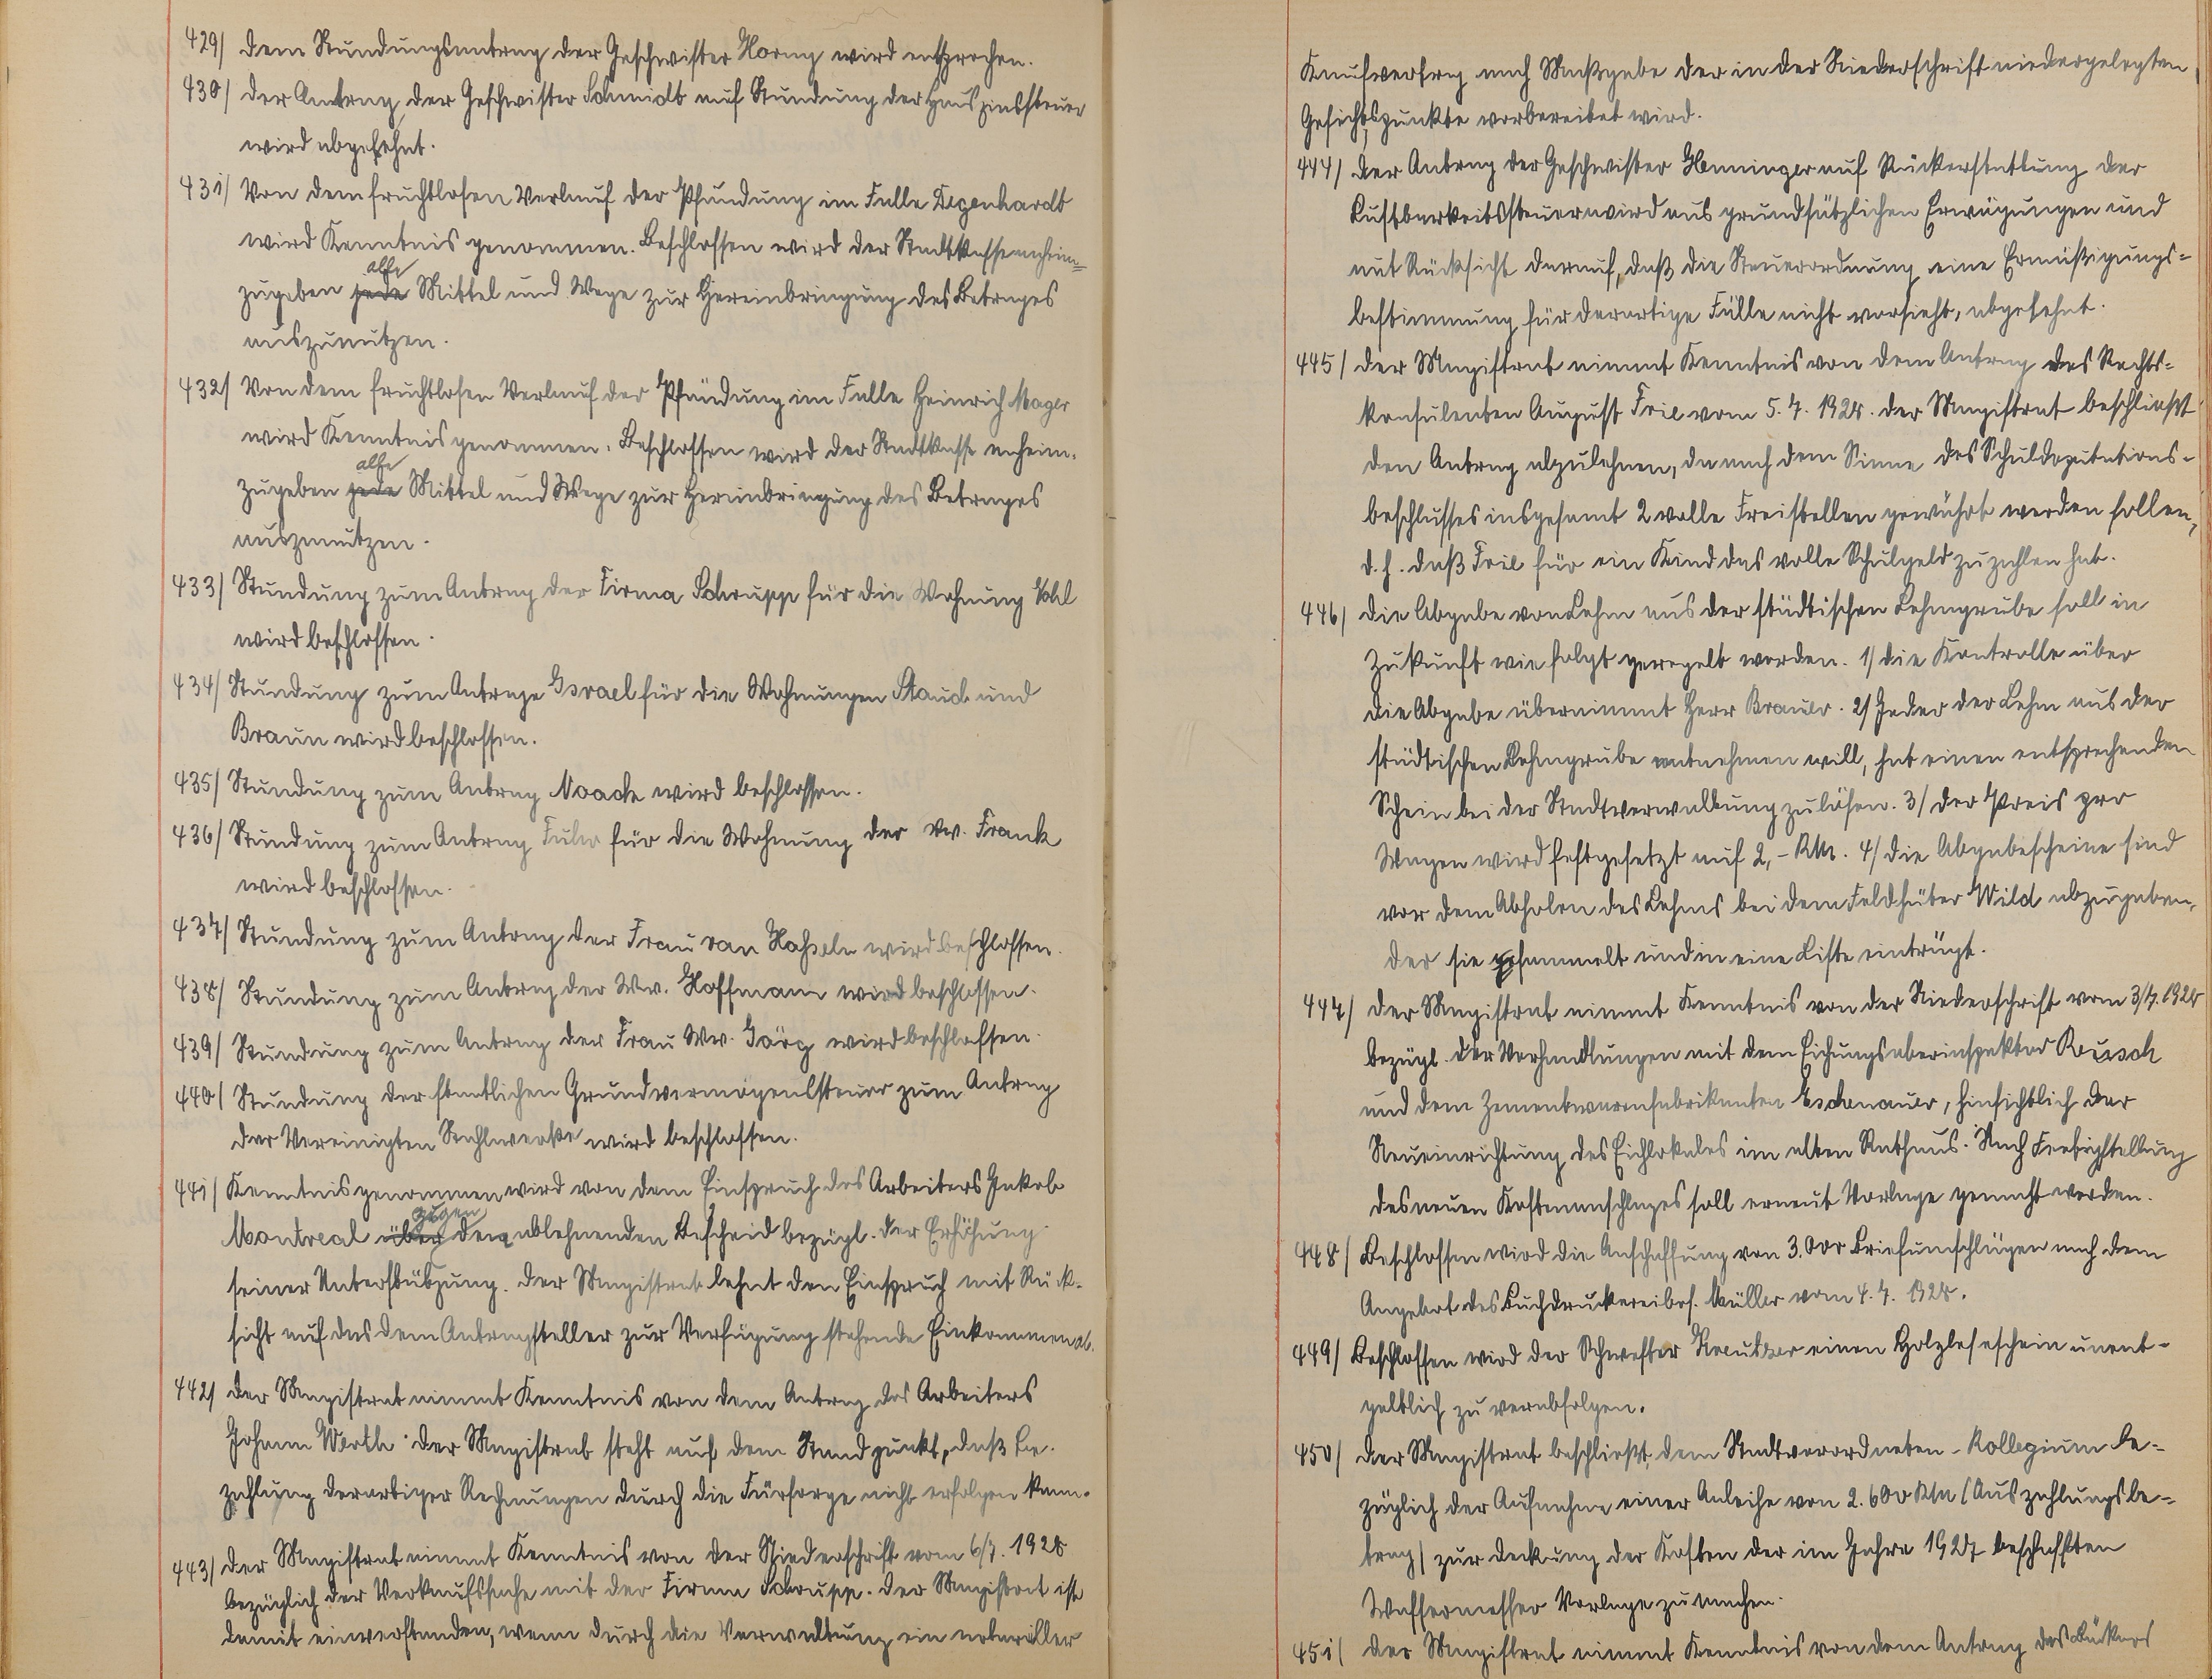 429/ Dem Stundungsantrag der Geschwister Horny wird entsprochen.
430/ Der Antrag der Geschwister Schmidt auf Stundung der Hauszinssteuer
wird abgelehnt.
431/ Von dem fruchtlosen Verlauf der Pfändung im Falle Degenhardt
wird Kenntnis genommen. Beschlossen wird der Stadtkasse anheim=
alle
zugeben jede Mittel und Wege zur Hereinbringung des Betrages
auszunutzen.
432/ Von dem fruchtlosen Verlauf der Pfändung im Falle Heinrich Mager
wird Kenntnis genommen. Beschlossen wird der Stadtkasse anheim-
alle
zugeben jede Mittel und Wege zur Hereinbringung des Betrages
auszunutzen.
433/ Stundung zum Antrag der Firma Schrupp für die Wohnung Kohl
wird beschlossen.
434/ Stundung zum Antrage Israel für die Wohnungen Staudt und
Braun wird beschlossen.
435/ Stundung zum Antrag Noack wird beschlossen.
436/ Stundung zum Antrag Fuhr für die Wohnung der Ww. Frank
wird beschlossen.
437/ Stundung zum Antrag der Frau van Hasseln wird beschlossen.
438/ Stundung zum Antrag der Ww. Hoffmann wird beschlossen.
439/ Stundung zum Antrag der Frau Ww. Görg wird beschlossen.
440/ Stundung der staatlichen Grundvermögenssteuer zum Antrag
der Vereinigten Stahlwerke wird beschlossen.
441/ Kenntnis genommen wird von dem Einspruch des Arbeiters Jakob
gegen
Montreal über den ablehnenden Bescheid bezügl. der Erhöhung
seiner Unterstützung. Der Magistrat lehnt den Einspruch mit Rück-
sicht auf das dem Antragsteller zur Verfügung stehende Einkommen ab.
442/ Der Magistrat nimmt Kenntnis von dem Antrag des Arbeiters
Johann Werth. Der Magistrat steht auf dem Standpunkt, daß Be-
zahlung derartiger Rechnungen durch die Fürsorge nicht erfolgen kann.
443/ Der Magistrat nimmt Kenntnis von der Niederschrift vom 6/7. 1928
bezüglich der Verkaufssache mit der Firma Schrupp. Der Magistrat ist
damit einverstanden, wenn durch die Verwaltung ein notarieller
Kaufvertrag nach Maßgabe der in der Niederschrift niedergelegten
Gesichtspunkte vorbereitet wird.
444/ Der Antrag der Geschwister Henninger auf Rückerstattung der
Lustbarkeitssteuer wird aus grundsätzlichen Erwägungen und
mit Rücksicht darauf, daß die Steuerordnung eine Ermäßigungs=
bestimmung für derartige Fälle nicht vorsieht, abgelehnt.
445/ Der Magistrat nimmt Kenntnis von dem Antrag des Rechts=
konsulenten August Friel vom 5.7. 1928. Der Magistrat beschließt
den Antrag abzulehnen, da nach dem Sinne des Schuldeputations-
beschlusses insgesamt 2 volle Freistellen gewährt werden sollen,
d.h. daß Friel für ein Kind das volle Schulgeld zu zahlen hat.
446/ Die Abgabe von Lehm aus der städtischen Lehmgrube soll in
Zukunft wie folgt geregelt werden. 1/ Die Kontrolle über
die Abgabe übernimmt Herr Brauer. 2/ Jeder der Lehm aus der
städtischen Lehmgrube entnehmen will, hat einen entsprechenden
Schein bei der Stadtverwaltung zu lösen. 3/ Der Preis pro
Wagen wird festgesetzt auf 2,- RM. 4/ Die Abgabescheine sind
vor dem Abholen des Lehms bei dem Feldhüter Wild abzugeben,
der sie sammelt und in eine Liste einträgt.
447/ Der Magistrat nimmt Kenntnis von der Niederschrift vom 3/7. 1928
bezügl. der Verhandlungen mit dem Eichungsoberinspektor Reusch
und dem Zementwarenfabrikanten Eschenauer, hinsichtlich der
Neueinrichtung des Eichlokales im alten Rathaus. Nach Fertigstellung
des neuen Kostenanschlages soll erneut Vorlage gemacht werden.
448/ Beschlossen wird die Anschaffung von 3.000 Briefumschlägen nach dem
Angebot des Buchdruckereibes. Müller vom 4.7. 1928.
449/ Beschlossen wird der Schwester Kreutzer einen Holzleseschein unent-
geltlich zu verabfolgen.
450/ Der Magistrat beschließt, dem Stadtverordneten-Kollegium be-
züglich der Aufnahme einer Anleihe von 2.600 RM (Auszahlungsbe-
trag) zur Deckung der Kosten der im Jahre 1927 beschafften
Wassermesser Vorlage zu machen.
451/ Der Magistrat nimmt Kenntnis von dem Antrag des Bäckers